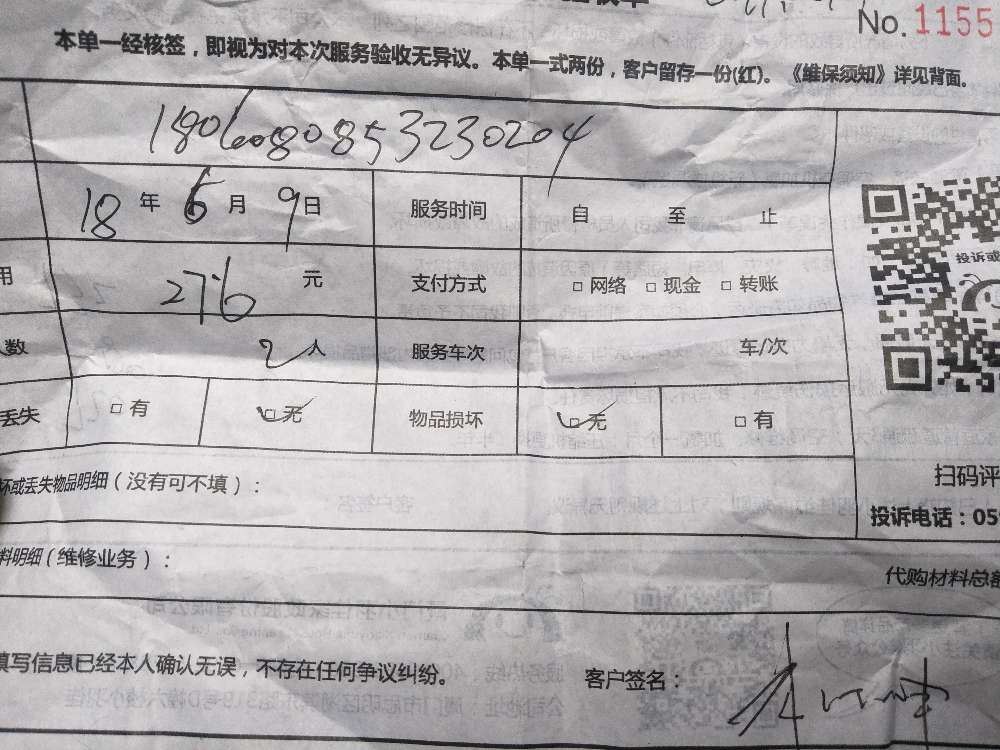 No. 1155
本单一经核签，即视为对本次服务验收无异议。本单一式两份，客户留存一份(红)。《维保须知》详见背面。
1806080853230204
18 年 6 月 9 日 服务时间 自 至 止
用 276 元 支付方式 □ 网络 □ 现金 □ 转账
人数 2 人 服务车次 车/次
投诉或
丢失 □ 有 □ 无 物品损坏 □ 无 □ 有
坏或丢失物品明细（没有可不填）：
扫码评
投诉电话：05
料明细（维修业务）：
代购材料总额
填写信息已经本人确认无误，不存在任何争议纠纷。 客户签名：